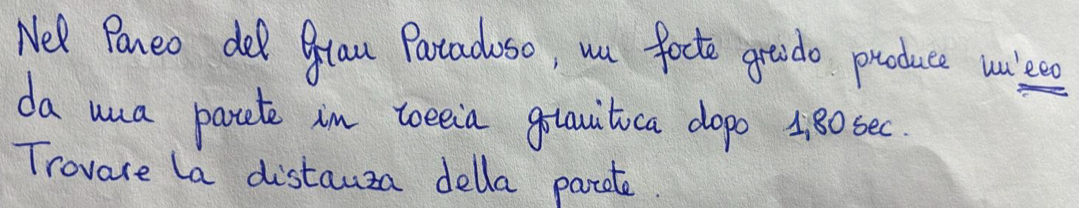 Nel Parco del Gran Paradiso, un forte grido produce un'eco
da una parete in roccia granitica dopo 1,80 sec.
Trovare la distanza della parete.